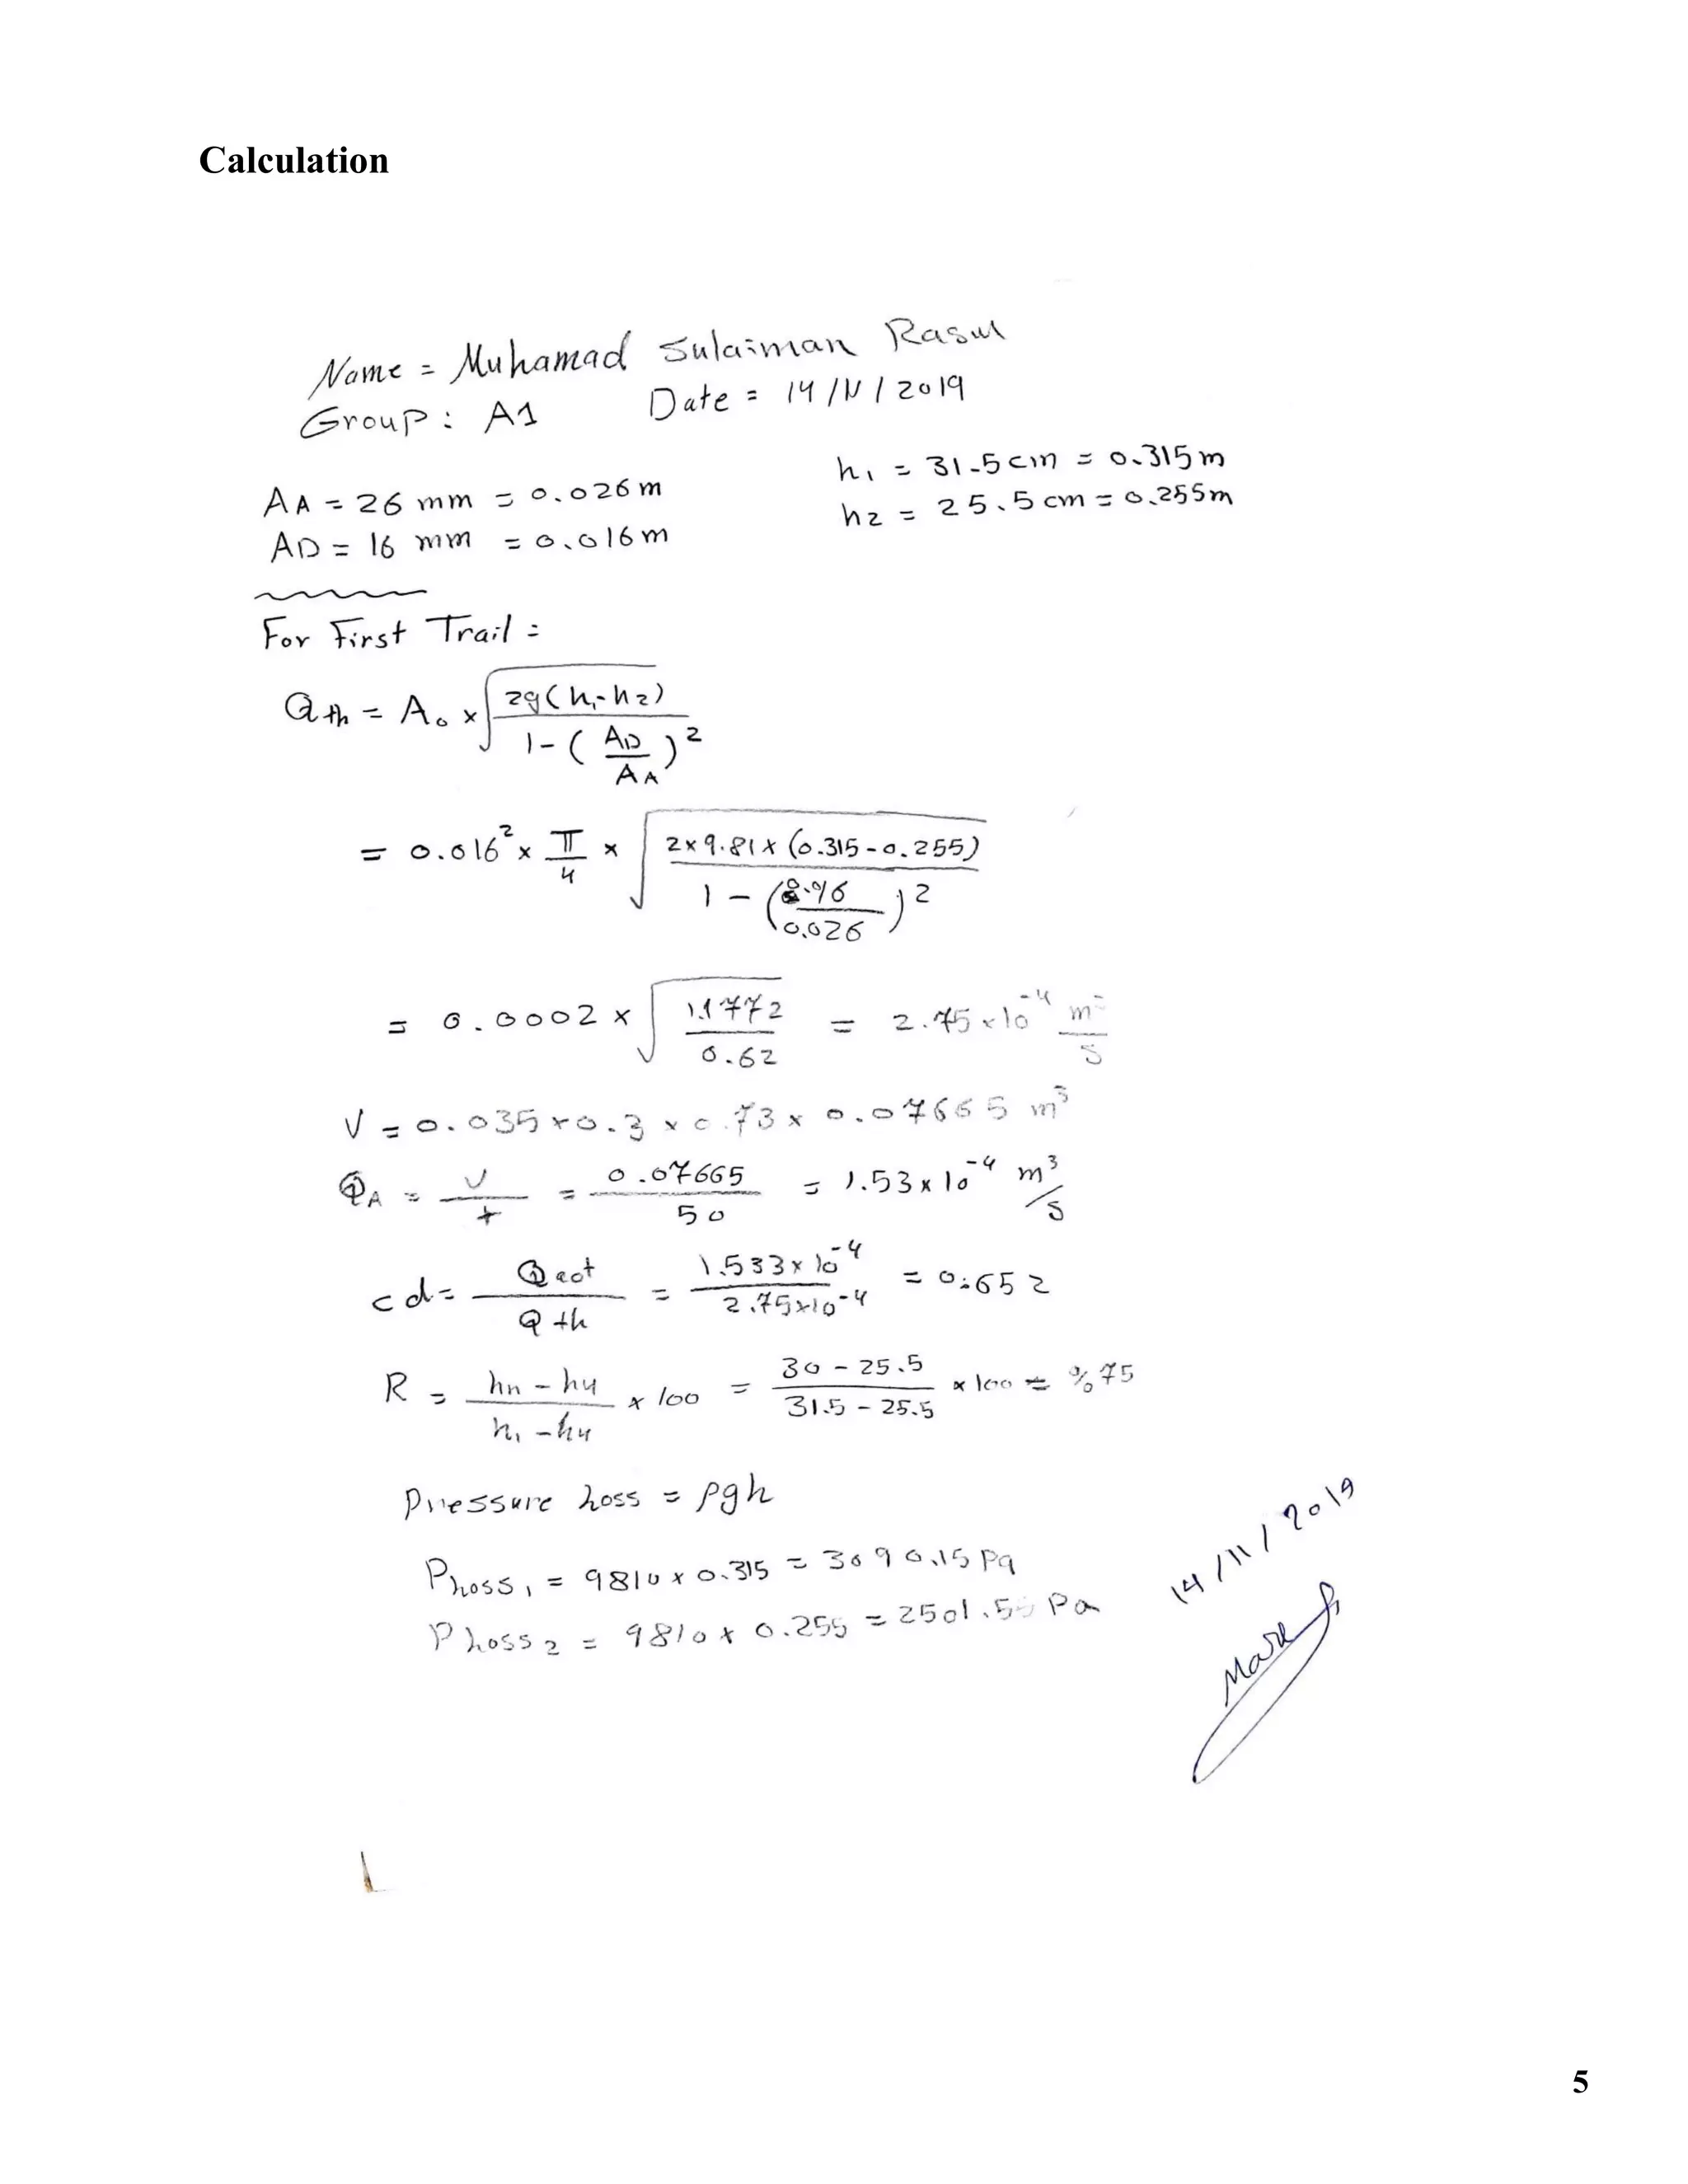 Calculation
Name = Muhamad Sulaiman Rasul
Group: A1 Date = 14/11/2019
AA = 26 mm = 0.026m
AD = 16 mm = 0.016m
h1 = 31.5cm = 0.315m
h2 = 25.5cm = 0.255m
For First Trail =
Qth = Ao × √(2g(h1-h2) / (1-(AD/AA)²))
= 0.016² × π/4 × √(2×9.81×(0.315-0.255) / (1-(0.016/0.026)²))
= 0.0002 × √(1.1772/0.62) = 2.75×10⁻⁴ m³/s
V = 0.035×0.3×0.73×0.07665 m³
QA = V/t = 0.07665/50 = 1.53×10⁻⁴ m³/s
cd = Qact/Qth = 1.533×10⁻⁴/2.75×10⁻⁴ = 0.652
R = (hn-h4)/(h1-h4) × 100 = (30-25.5)/(31.5-25.5) × 100 = %75
Pressure Loss = ρgh
PLoss1 = 9810 × 0.315 = 3090.15 Pa
PLoss2 = 9810 × 0.255 = 2501.55 Pa
14/11/2019
5